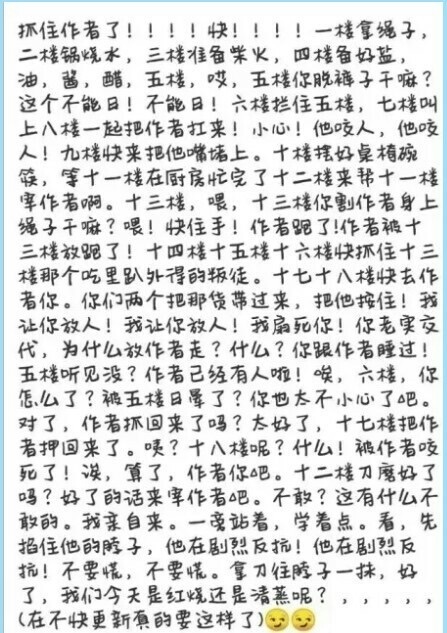 抓住作者了！！！！快！！！！一楼拿绳子，
二楼锅烧水，三楼准备柴火，四楼备好盐，
油，酱，醋，五楼，哎，五楼你脱裤子干嘛？
这个不能日！不能日！六楼拦住五楼，七楼叫
上八楼一起把作者扛来！小心！他咬人，他咬
人！九楼快来把他嘴堵上。十楼摆好桌椅碗
筷，等十一楼在厨房忙完了十二楼来帮十一楼
宰作者啊。十三楼，喂，十三楼你割作者身上
绳子干嘛？喂！快住手！作者跑了！作者被十
三楼放跑了！十四楼十五楼十六楼快抓住十三
楼那个吃里趴外得的叛徒。十七十八楼快去作
者你。你们两个把那货带过来，把他按住！我
让你放人！我让你放人！我扇死你！你老实交
代，为什么放作者走？什么？你跟作者睡过！
五楼听见没？作者已经有人啦！唉，六楼，你
怎么了？被五楼日晕了？你也太不小心了吧。
对了，作者抓回来了吗？太好了，十七楼把作
者押回来了。咦？十八楼呢？什么！被作者咬
死了！涘，算了，作者你吧。十二楼刀磨好了
吗？好了的话来宰作者吧。不敢？这有什么不
敢的。我亲自来。一旁站着，学着点。看，先
掐住他的脖子，他在剧烈反抗！他在剧烈反
抗！不要慌，不要慌。拿刀往脖子一抹，好
了，我们今天是红烧还是清蒸呢？，，，，，
(在不快更新真的要这样了)😏😏